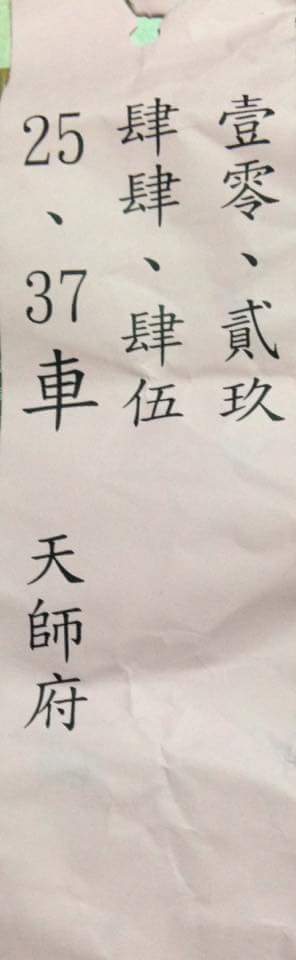 壹零、貳玖
肆肆、肆伍
25、37車 天師府